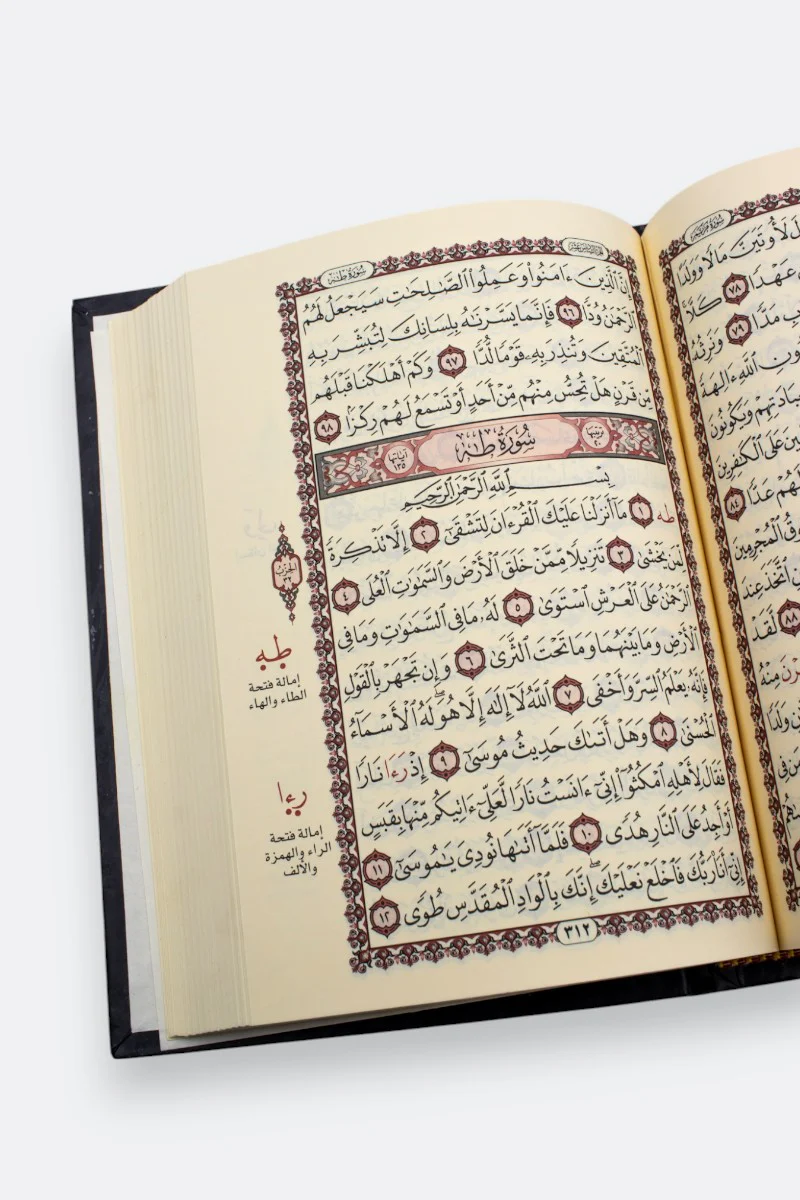 سُورَةُ مَرْيَمَ
لَأُوتَيَنَّ مَالًا وَوَلَدًا
عَهْدًا ٧٨ كَلَّا
مَدًّا ٧٩ وَنَرِثُهُ
اللَّهِ ءَالِهَةً
وَيَكُونُونَ
عَلَى الْكَٰفِرِينَ
لَهُمْ عَدًّا ٨٤
الْمُجْرِمِينَ
اتَّخَذَ عِندَ
٨٨ لَقَدْ
مِنْهُ
وَلَدًا
سُورَةُ طه
إِنَّ الَّذِينَ ءَامَنُوا۟ وَعَمِلُوا۟ الصَّٰلِحَٰتِ سَيَجْعَلُ لَهُمُ
الرَّحْمَٰنُ وُدًّا ٩٦ فَإِنَّمَا يَسَّرْنَٰهُ بِلِسَانِكَ لِتُبَشِّرَ بِهِ
الْمُتَّقِينَ وَتُنذِرَ بِهِۦ قَوْمًا لُّدًّا ٩٧ وَكَمْ أَهْلَكْنَا قَبْلَهُم
مِّن قَرْنٍ هَلْ تُحِسُّ مِنْهُم مِّنْ أَحَدٍ أَوْ تَسْمَعُ لَهُمْ رِكْزًۢا ٩٨
ترتيبها ٢٠ سُورَةُ طه آياتها ١٣٥
بِسْمِ اللَّهِ الرَّحْمَٰنِ الرَّحِيمِ
طه ١ مَآ أَنزَلْنَا عَلَيْكَ الْقُرْءَانَ لِتَشْقَىٰٓ ٢ إِلَّا تَذْكِرَةً
لِّمَن يَخْشَىٰ ٣ تَنزِيلًا مِّمَّنْ خَلَقَ الْأَرْضَ وَالسَّمَٰوَٰتِ الْعُلَى ٤
الرَّحْمَٰنُ عَلَى الْعَرْشِ اسْتَوَىٰ ٥ لَهُۥ مَا فِي السَّمَٰوَٰتِ وَمَا فِي
الْأَرْضِ وَمَا بَيْنَهُمَا وَمَا تَحْتَ الثَّرَىٰ ٦ وَإِن تَجْهَرْ بِالْقَوْلِ
فَإِنَّهُۥ يَعْلَمُ السِّرَّ وَأَخْفَى ٧ اللَّهُ لَآ إِلَٰهَ إِلَّا هُوَ لَهُ الْأَسْمَآءُ
الْحُسْنَىٰ ٨ وَهَلْ أَتَىٰكَ حَدِيثُ مُوسَىٰٓ ٩ إِذْ رَءَا نَارًا
فَقَالَ لِأَهْلِهِ امْكُثُوٓا۟ إِنِّىٓ ءَانَسْتُ نَارًا لَّعَلِّىٓ ءَاتِيكُم مِّنْهَا بِقَبَسٍ
أَوْ أَجِدُ عَلَى النَّارِ هُدًى ١٠ فَلَمَّآ أَتَىٰهَا نُودِىَ يَٰمُوسَىٰٓ ١١
إِنِّىٓ أَنَا۠ رَبُّكَ فَاخْلَعْ نَعْلَيْكَ إِنَّكَ بِالْوَادِ الْمُقَدَّسِ طُوًى ١٢
٣١٢
الحزب
٣٢
طه
إمالة فتحة
الطاء والهاء
رءا
إمالة فتحة
الراء والهمزة
والألف